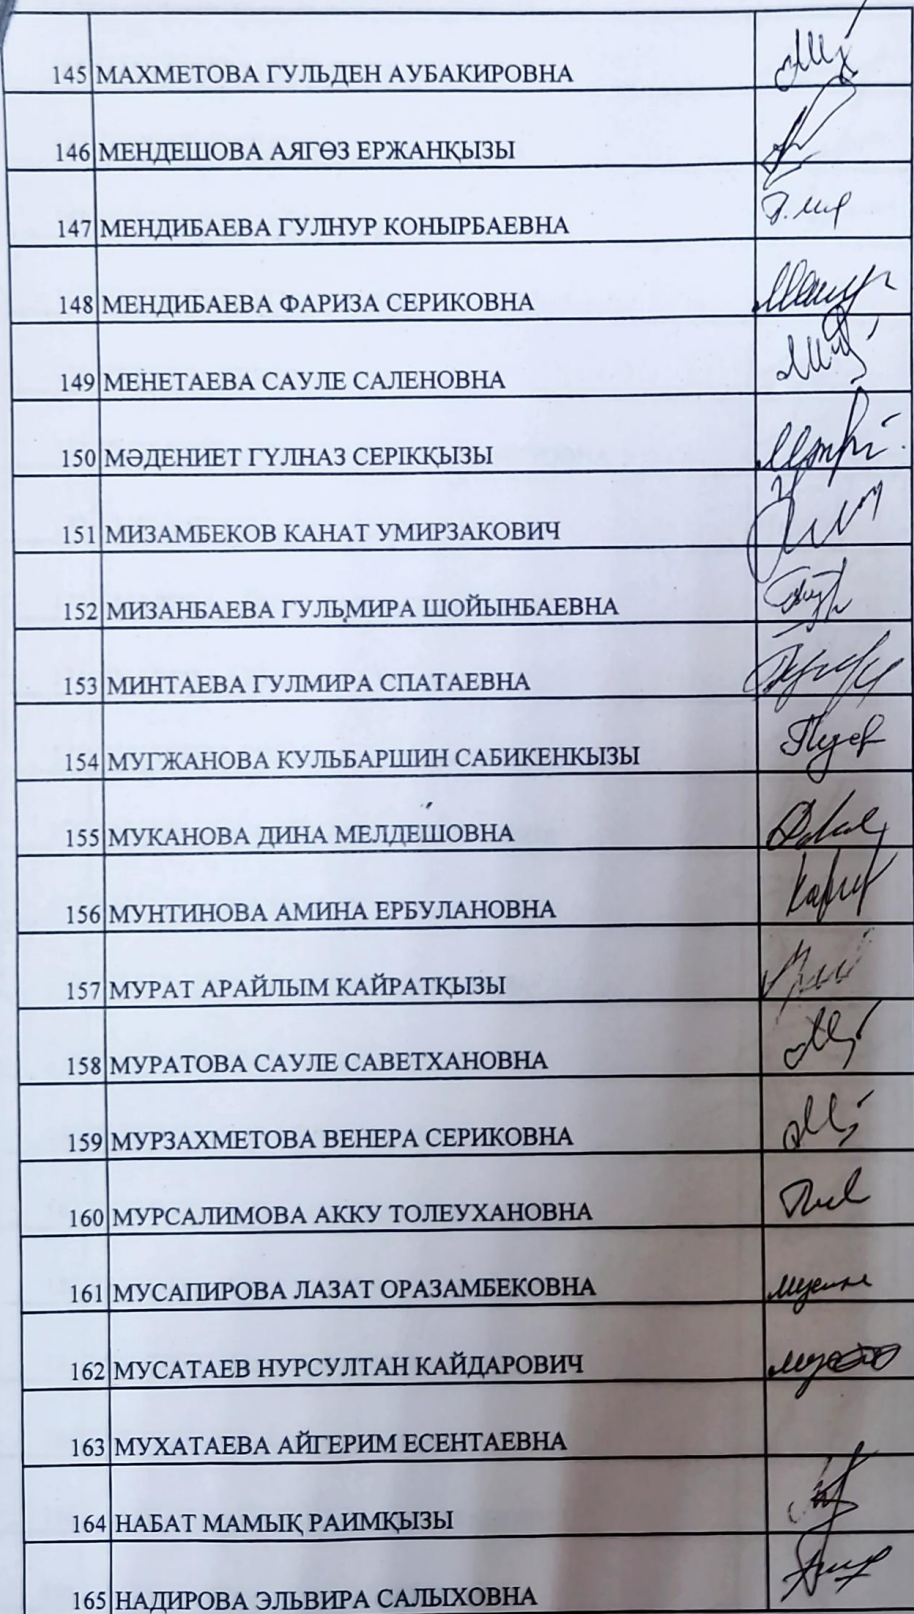 145 МАХМЕТОВА ГУЛЬДЕН АУБАКИРОВНА
146 МЕНДЕШОВА АЯГӨЗ ЕРЖАНҚЫЗЫ
147 МЕНДИБАЕВА ГУЛНУР КОНЫРБАЕВНА
148 МЕНДИБАЕВА ФАРИЗА СЕРИКОВНА
149 МЕНЕТАЕВА САУЛЕ САЛЕНОВНА
150 МӘДЕНИЕТ ГҮЛНАЗ СЕРІКҚЫЗЫ
151 МИЗАМБЕКОВ КАНАТ УМИРЗАКОВИЧ
152 МИЗАНБАЕВА ГУЛЬМИРА ШОЙЫНБАЕВНА
153 МИНТАЕВА ГУЛМИРА СПАТАЕВНА
154 МУГЖАНОВА КУЛЬБАРШИН САБИКЕНКЫЗЫ
155 МУКАНОВА ДИНА МЕЛДЕШОВНА
156 МУНТИНОВА АМИНА ЕРБУЛАНОВНА
157 МУРАТ АРАЙЛЫМ КАЙРАТҚЫЗЫ
158 МУРАТОВА САУЛЕ САВЕТХАНОВНА
159 МУРЗАХМЕТОВА ВЕНЕРА СЕРИКОВНА
160 МУРСАЛИМОВА АККУ ТОЛЕУХАНОВНА
161 МУСАПИРОВА ЛАЗАТ ОРАЗАМБЕКОВНА
162 МУСАТАЕВ НУРСУЛТАН КАЙДАРОВИЧ
163 МУХАТАЕВА АЙГЕРИМ ЕСЕНТАЕВНА
164 НАБАТ МАМЫҚ РАИМҚЫЗЫ
165 НАДИРОВА ЭЛЬВИРА САЛЫХОВНА